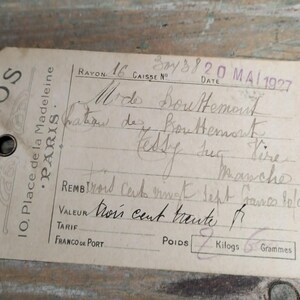 OS
10, Place de la Madeleine
PARIS
RAYON 16 CAISSE N° DATE 20 MAI 1927
Mr de Bouttemont
de Bouttemont
Tessy sur Vire
Manche
REMB trois cent vingt sept francs
VALEUR trois cent trente f
TARIF
FRANCO DE PORT POIDS 2 Kilogs Grammes